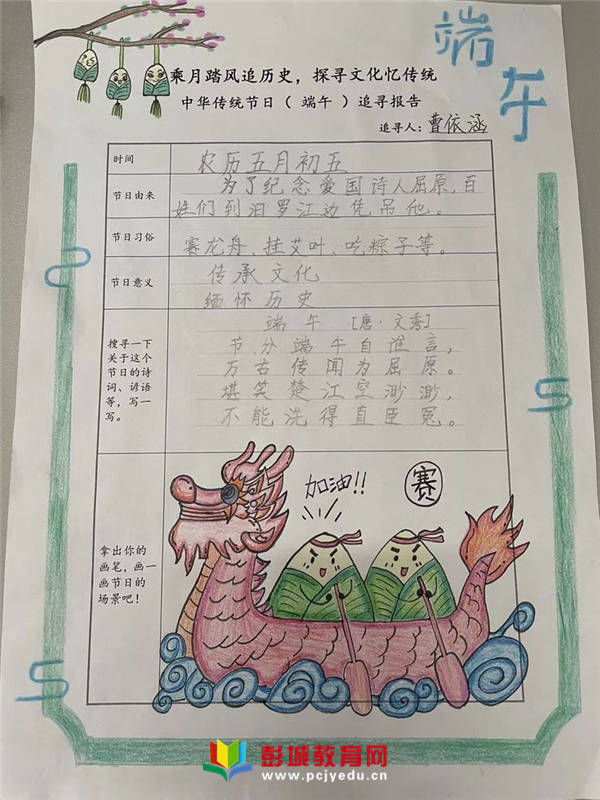 端午
乘月踏风追历史，探寻文化忆传统
中华传统节日（ 端午 ）追寻报告
追寻人：曹依涵
时间
农历五月初五
节日由来
为了纪念爱国诗人屈原，百
姓们到汨罗江边凭吊他。
节日习俗
赛龙舟、挂艾叶、吃粽子等。
节日意义
传承文化
缅怀历史
搜寻一下
关于这个
节日的诗
词、谚语
等，写一
写。
端午 [唐·文秀]
节分端午自谁言，
万古传闻为屈原。
堪笑楚江空渺渺，
不能洗得直臣冤。
拿出你的
画笔，画一
画节日的
场景吧！
加油！！
赛
彭城教育网
www.pcjyedu.cn